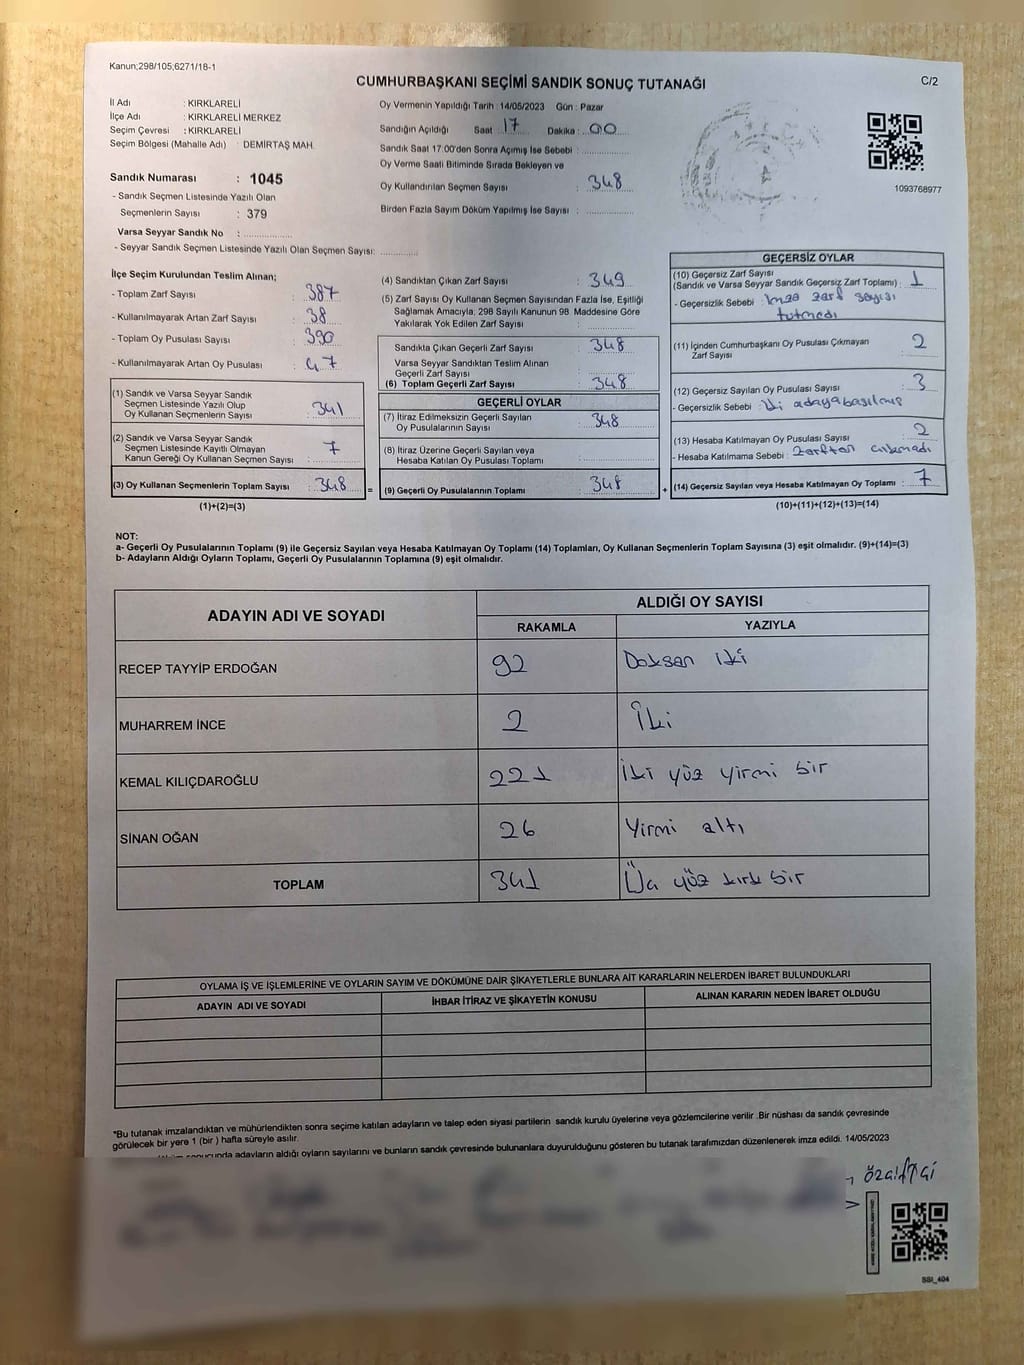 Kanun;298/105;6271/18-1
C/2
CUMHURBAŞKANI SEÇİMİ SANDIK SONUÇ TUTANAĞI
İl Adı : KIRKLARELİ
İlçe Adı : KIRKLARELİ MERKEZ
Seçim Çevresi : KIRKLARELİ
Seçim Bölgesi (Mahalle Adı) : DEMİRTAŞ MAH.
Sandık Numarası : 1045
- Sandık Seçmen Listesinde Yazılı Olan
Seçmenlerin Sayısı : 379
Varsa Seyyar Sandık No :
- Seyyar Sandık Seçmen Listesinde Yazılı Olan Seçmen Sayısı:
Oy Vermenin Yapıldığı Tarih : 14/05/2023 Gün : Pazar
Sandığın Açıldığı Saat : 17 Dakika : 00
Sandık Saat 17:00'den Sonra Açımış İse Sebebi :
Oy Verme Saati Bitiminde Sırada Bekleyen ve
Oy Kullandırılan Seçmen Sayısı : 348
Birden Fazla Sayım Döküm Yapılmış İse Sayısı :
1093768977
İlçe Seçim Kurulundan Teslim Alınan;
- Toplam Zarf Sayısı : 387
- Kullanılmayarak Artan Zarf Sayısı : 38
- Toplam Oy Pusulası Sayısı : 390
- Kullanılmayarak Artan Oy Pusulası : 47
(1) Sandık ve Varsa Seyyar Sandık
Seçmen Listesinde Yazılı Olup
Oy Kullanan Seçmenlerin Sayısı : 341
(2) Sandık ve Varsa Seyyar Sandık
Seçmen Listesinde Kayıtlı Olmayan
Kanun Gereği Oy Kullanan Seçmen Sayısı : 7
(3) Oy Kullanan Seçmenlerin Toplam Sayısı : 348
(1)+(2)=(3)
=
(4) Sandıktan Çıkan Zarf Sayısı : 349
(5) Zarf Sayısı Oy Kullanan Seçmen Sayısından Fazla İse, Eşitliği
Sağlamak Amacıyla, 298 Sayılı Kanunun 98. Maddesine Göre
Yakılarak Yok Edilen Zarf Sayısı :
Sandıkta Çıkan Geçerli Zarf Sayısı : 348
Varsa Seyyar Sandıktan Teslim Alınan
Geçerli Zarf Sayısı :
(6) Toplam Geçerli Zarf Sayısı : 348
GEÇERLİ OYLAR
(7) İtiraz Edilmeksizin Geçerli Sayılan
Oy Pusulalarının Sayısı : 348
(8) İtiraz Üzerine Geçerli Sayılan veya
Hesaba Katılan Oy Pusulası Toplamı :
(9) Geçerli Oy Pusulalarının Toplamı : 348
+
GEÇERSİZ OYLAR
(10) Geçersiz Zarf Sayısı
(Sandık ve Varsa Seyyar Sandık Geçersiz Zarf Toplamı) : 1
- Geçersizlik Sebebi : İmza zarf sayısı
tutmadı
(11) İçinden Cumhurbaşkanı Oy Pusulası Çıkmayan
Zarf Sayısı : 2
(12) Geçersiz Sayılan Oy Pusulası Sayısı : 3
- Geçersizlik Sebebi : İki adaya basılmış
(13) Hesaba Katılmayan Oy Pusulası Sayısı : 2
- Hesaba Katılmama Sebebi : Zarftan çıkmadı
(14) Geçersiz Sayılan veya Hesaba Katılmayan Oy Toplamı : 7
(10)+(11)+(12)+(13)=(14)
NOT:
a- Geçerli Oy Pusulalarının Toplamı (9) ile Geçersiz Sayılan veya Hesaba Katılmayan Oy Toplamı (14) Toplamları, Oy Kullanan Seçmenlerin Toplam Sayısına (3) eşit olmalıdır. (9)+(14)=(3)
b- Adayların Aldığı Oyların Toplamı, Geçerli Oy Pusulalarının Toplamına (9) eşit olmalıdır.
ADAYIN ADI VE SOYADI
ALDIĞI OY SAYISI
RAKAMLA YAZIYLA
RECEP TAYYİP ERDOĞAN 92 Doksan iki
MUHARREM İNCE 2 İki
KEMAL KILIÇDAROĞLU 221 İki yüz yirmi bir
SİNAN OĞAN 26 Yirmi altı
TOPLAM 341 Üç yüz kırk bir
OYLAMA İŞ VE İŞLEMLERİNE VE OYLARIN SAYIM VE DÖKÜMÜNE DAİR ŞİKAYETLERLE BUNLARA AİT KARARLARIN NELERDEN İBARET BULUNDUKLARI
ADAYIN ADI VE SOYADI İHBAR İTİRAZ VE ŞİKAYETİN KONUSU ALINAN KARARIN NEDEN İBARET OLDUĞU
*Bu tutanak imzalandıktan ve mühürlendikten sonra seçime katılan adayların ve talep eden siyasi partilerin sandık kurulu üyelerine veya gözlemcilerine verilir .Bir nüshası da sandık çevresinde
görülecek bir yere 1 (bir ) hafta süreyle asılır.
adayların aldığı oyların sayılarını ve bunların sandık çevresinde bulunanlara duyurulduğunu gösteren bu tutanak tarafımızdan düzenlenerek imza edildi. 14/05/2023
SSI_404